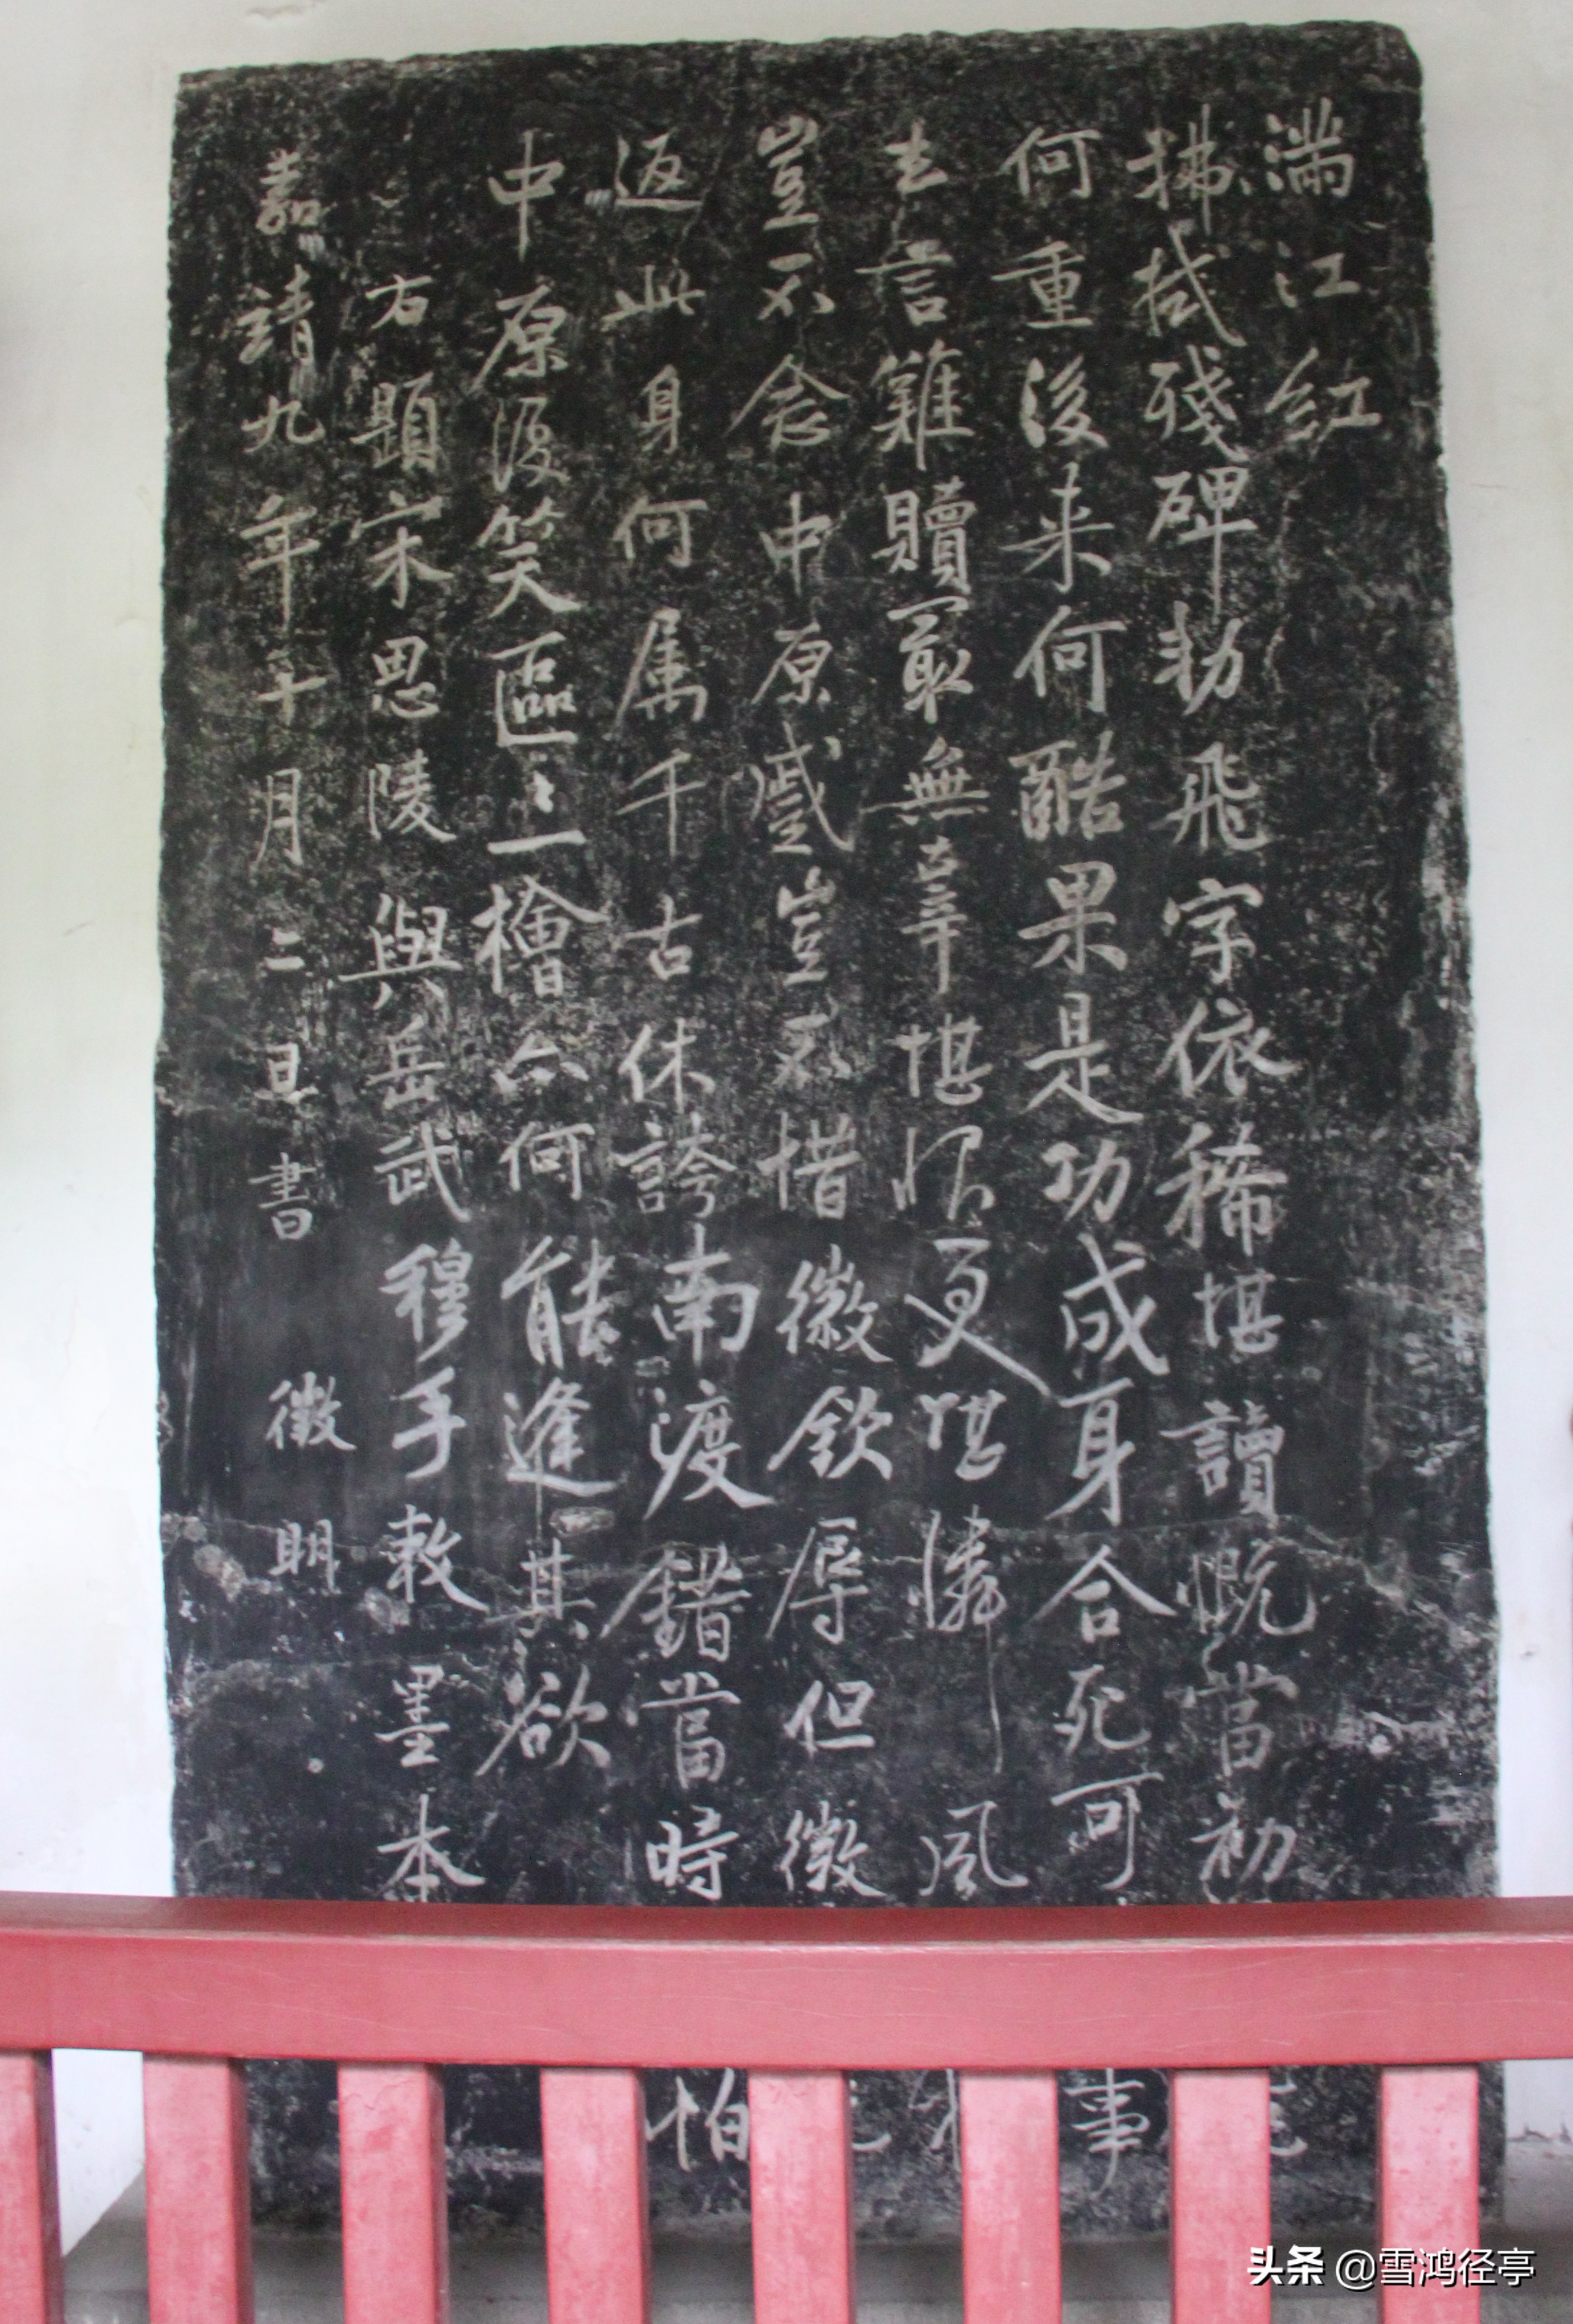 满江红
拂拭殘碑勑飛字依稀堪讀慨當初
何重後来何酷果是功成身合死可 事
去言難贖冣無辜堪恨更堪憐風
豈不念中原蹙豈不惜徽欽辱但徽
返此身何属千古休誇南渡錯當時 怕
中原復笑區〻一檜亦何能逢其欲
右題宋思陵與岳武穆手敕墨本
嘉靖九年十月二日書 徵明
头条 @雪鸿径亭